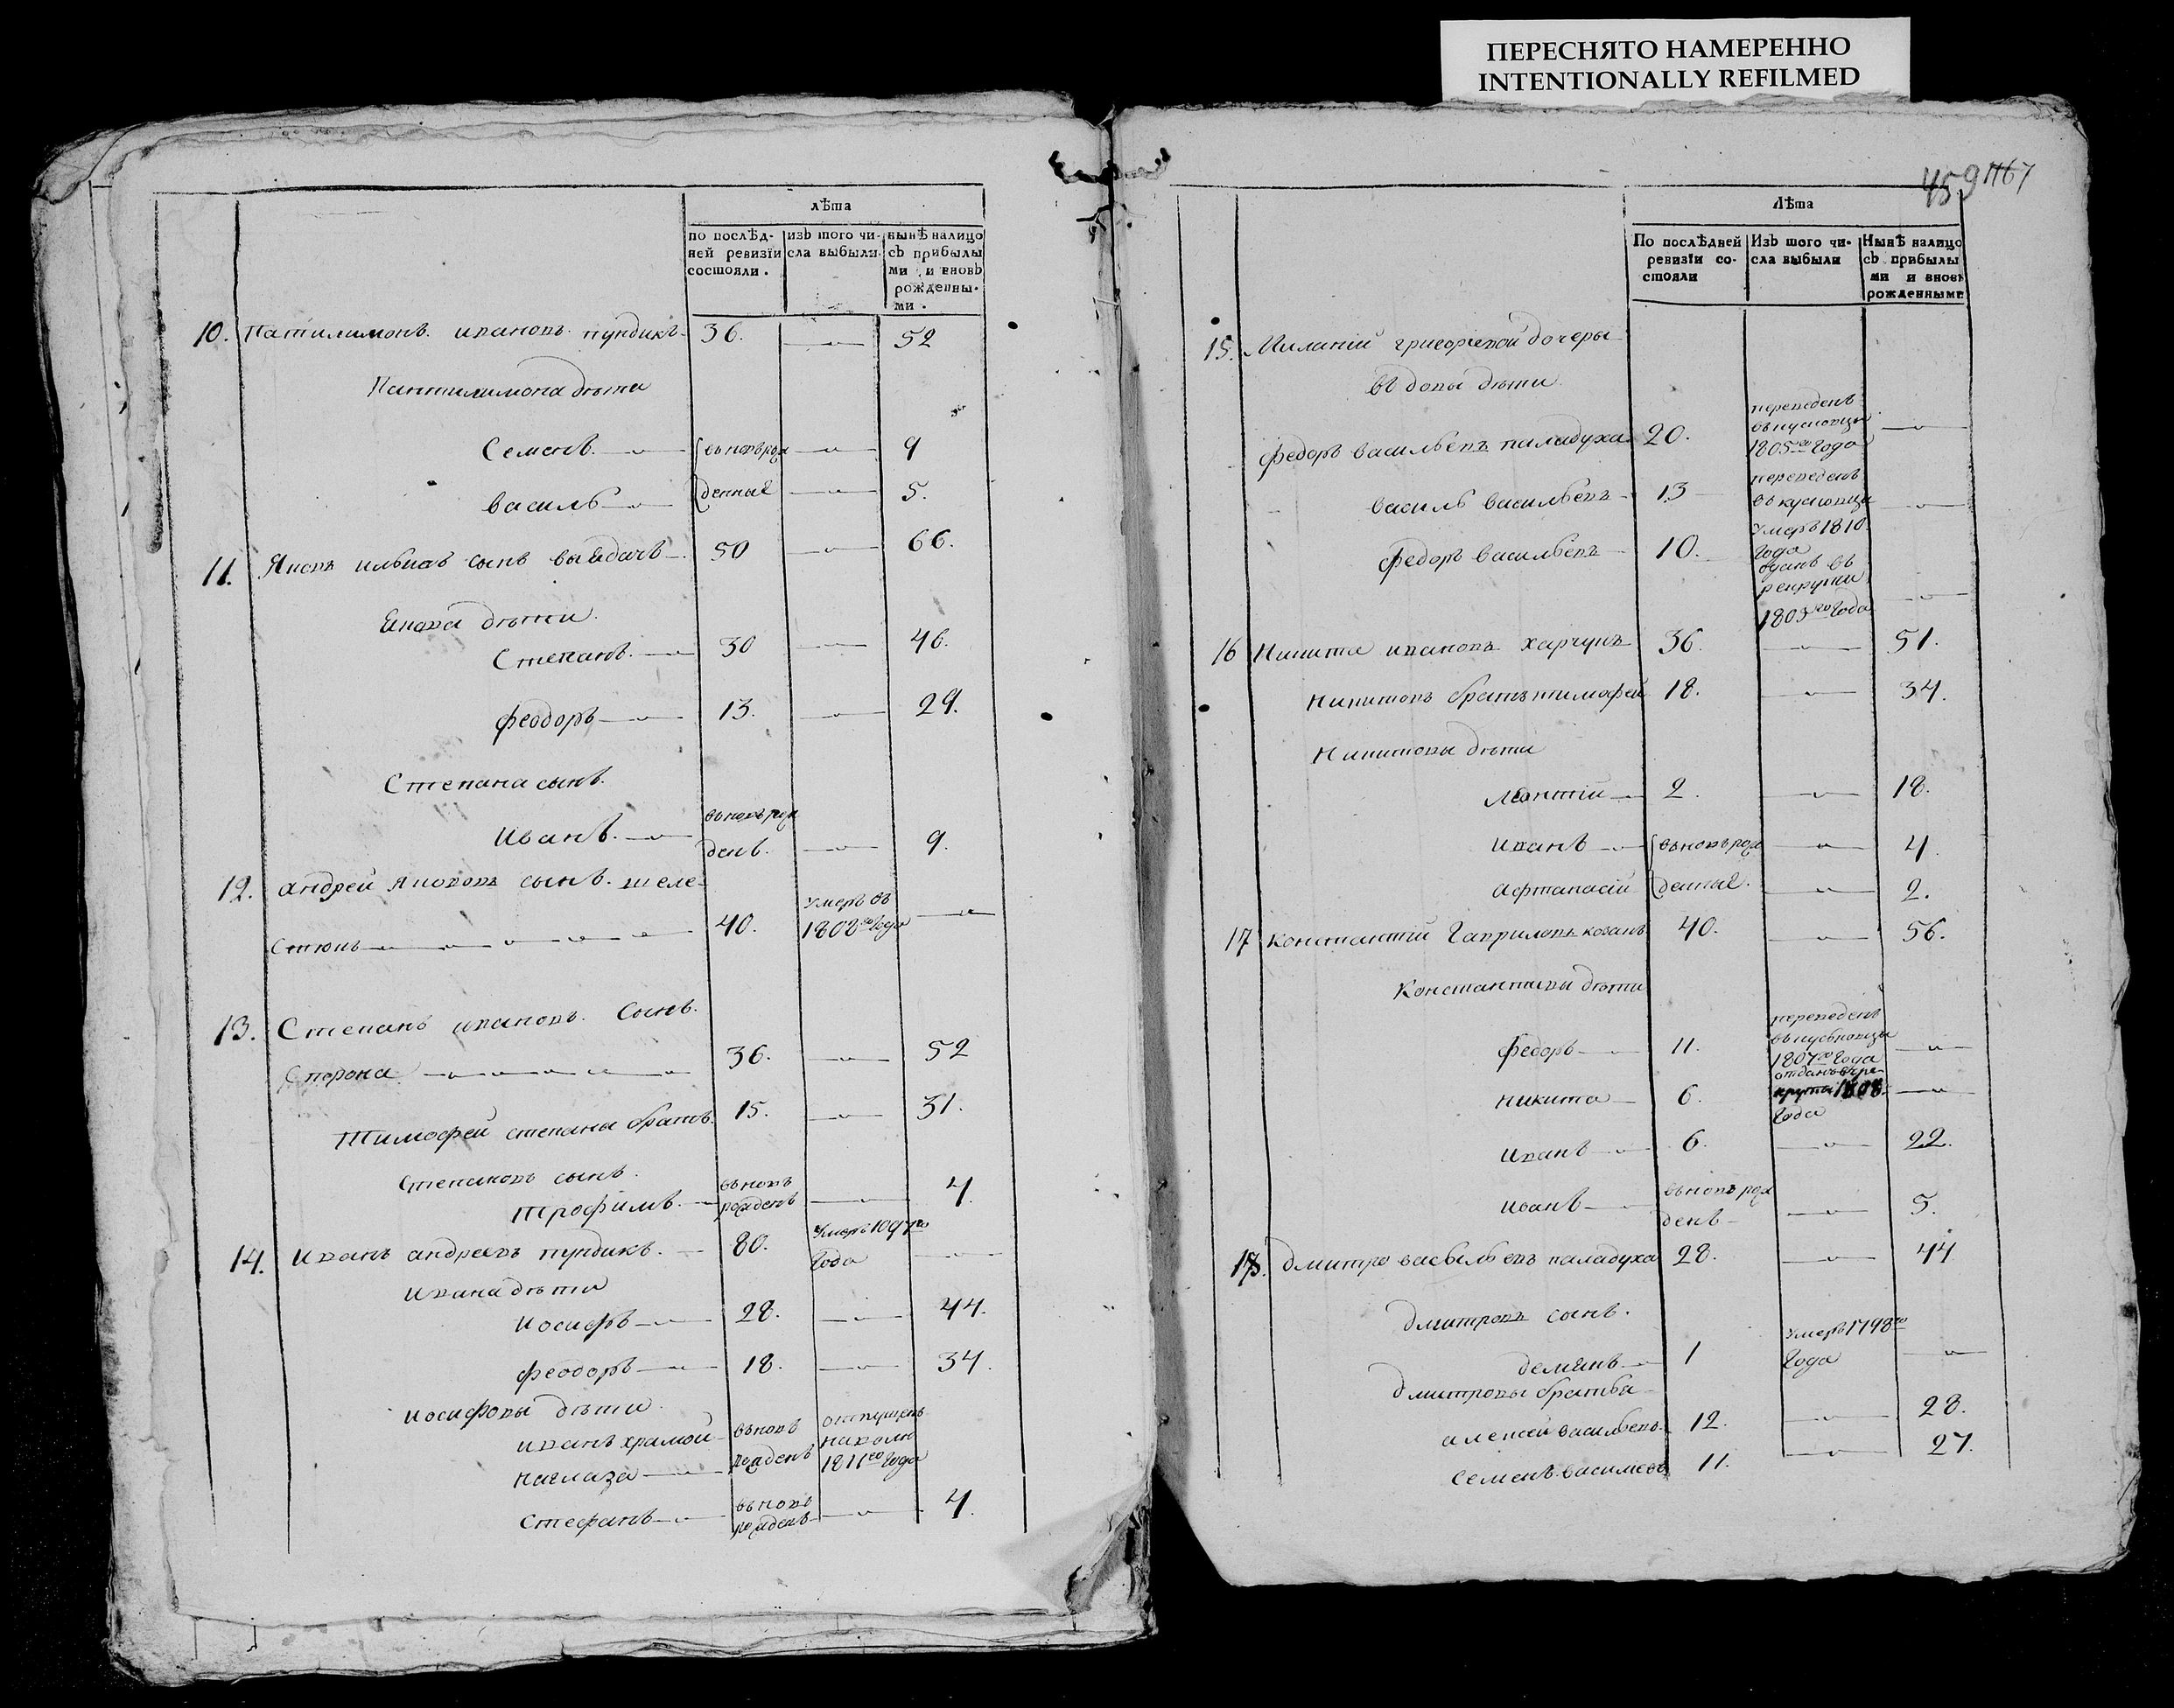 ПЕРЕСНЯТО НАМЕРЕННО
INTENTIONALLY REFILMED
лѣта
по послѣд-
ней ревизїи
состояли.
изъ того чи-
сла выбыли
нынѣ налицо
съ прибылы
ми и вновь
рожденны-
ми.
10. Патилимонъ ивановъ пундикъ 36. 52
Пантилимона дѣти
Семенъ вьновь рож 9
василь денные 5.
11. Яковъ ильиаъ сынъ 50 66.
Якова дѣти
Степанъ 30 46.
феодоръ 13. 29.
Степана сынъ
вьновь рож
Иванъ денъ. 9.
12. андрей якововъ сынъ шеле-
стюнъ 40. умеръ въ 1808го года
13. Степанъ ивановъ Сынъ
Сторона 36. 52
Тимофей степаны братъ 15. 31.
Степановъ сынъ
трофимъ вьновь рожденъ 4.
14. Иванъ андреевъ пундикъ 80. умеръ
года
Ивана дѣти
иосифъ 28. 44.
феодоръ 18. 34.
иосифовы дѣти
иванъ храмой вьновь отпущенъ
рожденъ наволю
1811го года
Стефанъ вьновь рожденъ 4.
459 1167
Лѣта
По послѣдней
ревизїи со-
стояли
Изъ того чи-
сла выбыли
Нынѣ налицо
съ прибылы
ми и вновь
рожденными
15. Миланїи григорїевой дочеры
вдовы дѣти
федоръ васильевъ паладуха 20. переведенъ
1805го года
василь васильевъ 13 переведенъ
федоръ васильевъ 10. умеръ 1810
года
отданъ въ
рекруты
1805го года
16 Никита ивановъ харчунъ 36. 51.
никитовъ братъ тимофей 18. 34.
Никитовы дѣти
леонтїй 2. 18.
иванъ вьновь рож 4.
афтанасїй денные. 2.
17 константїй Гавриловъ козакъ 40. 56.
Константины дѣти
федоръ 11. переведенъ
1807го года
никита 6. отданъ в ре-
круты 1808.
года
иванъ 6. 22.
иванъ вьновь рож
денъ 5.
18. дмитро васыльевъ паладуха 28. 44
дмитровъ сынъ.
демянъ 1 умеръ 1798го
года
дмитровы братья
алексей васильевъ 12. 28.
Семенъ василевъ 11. 27.